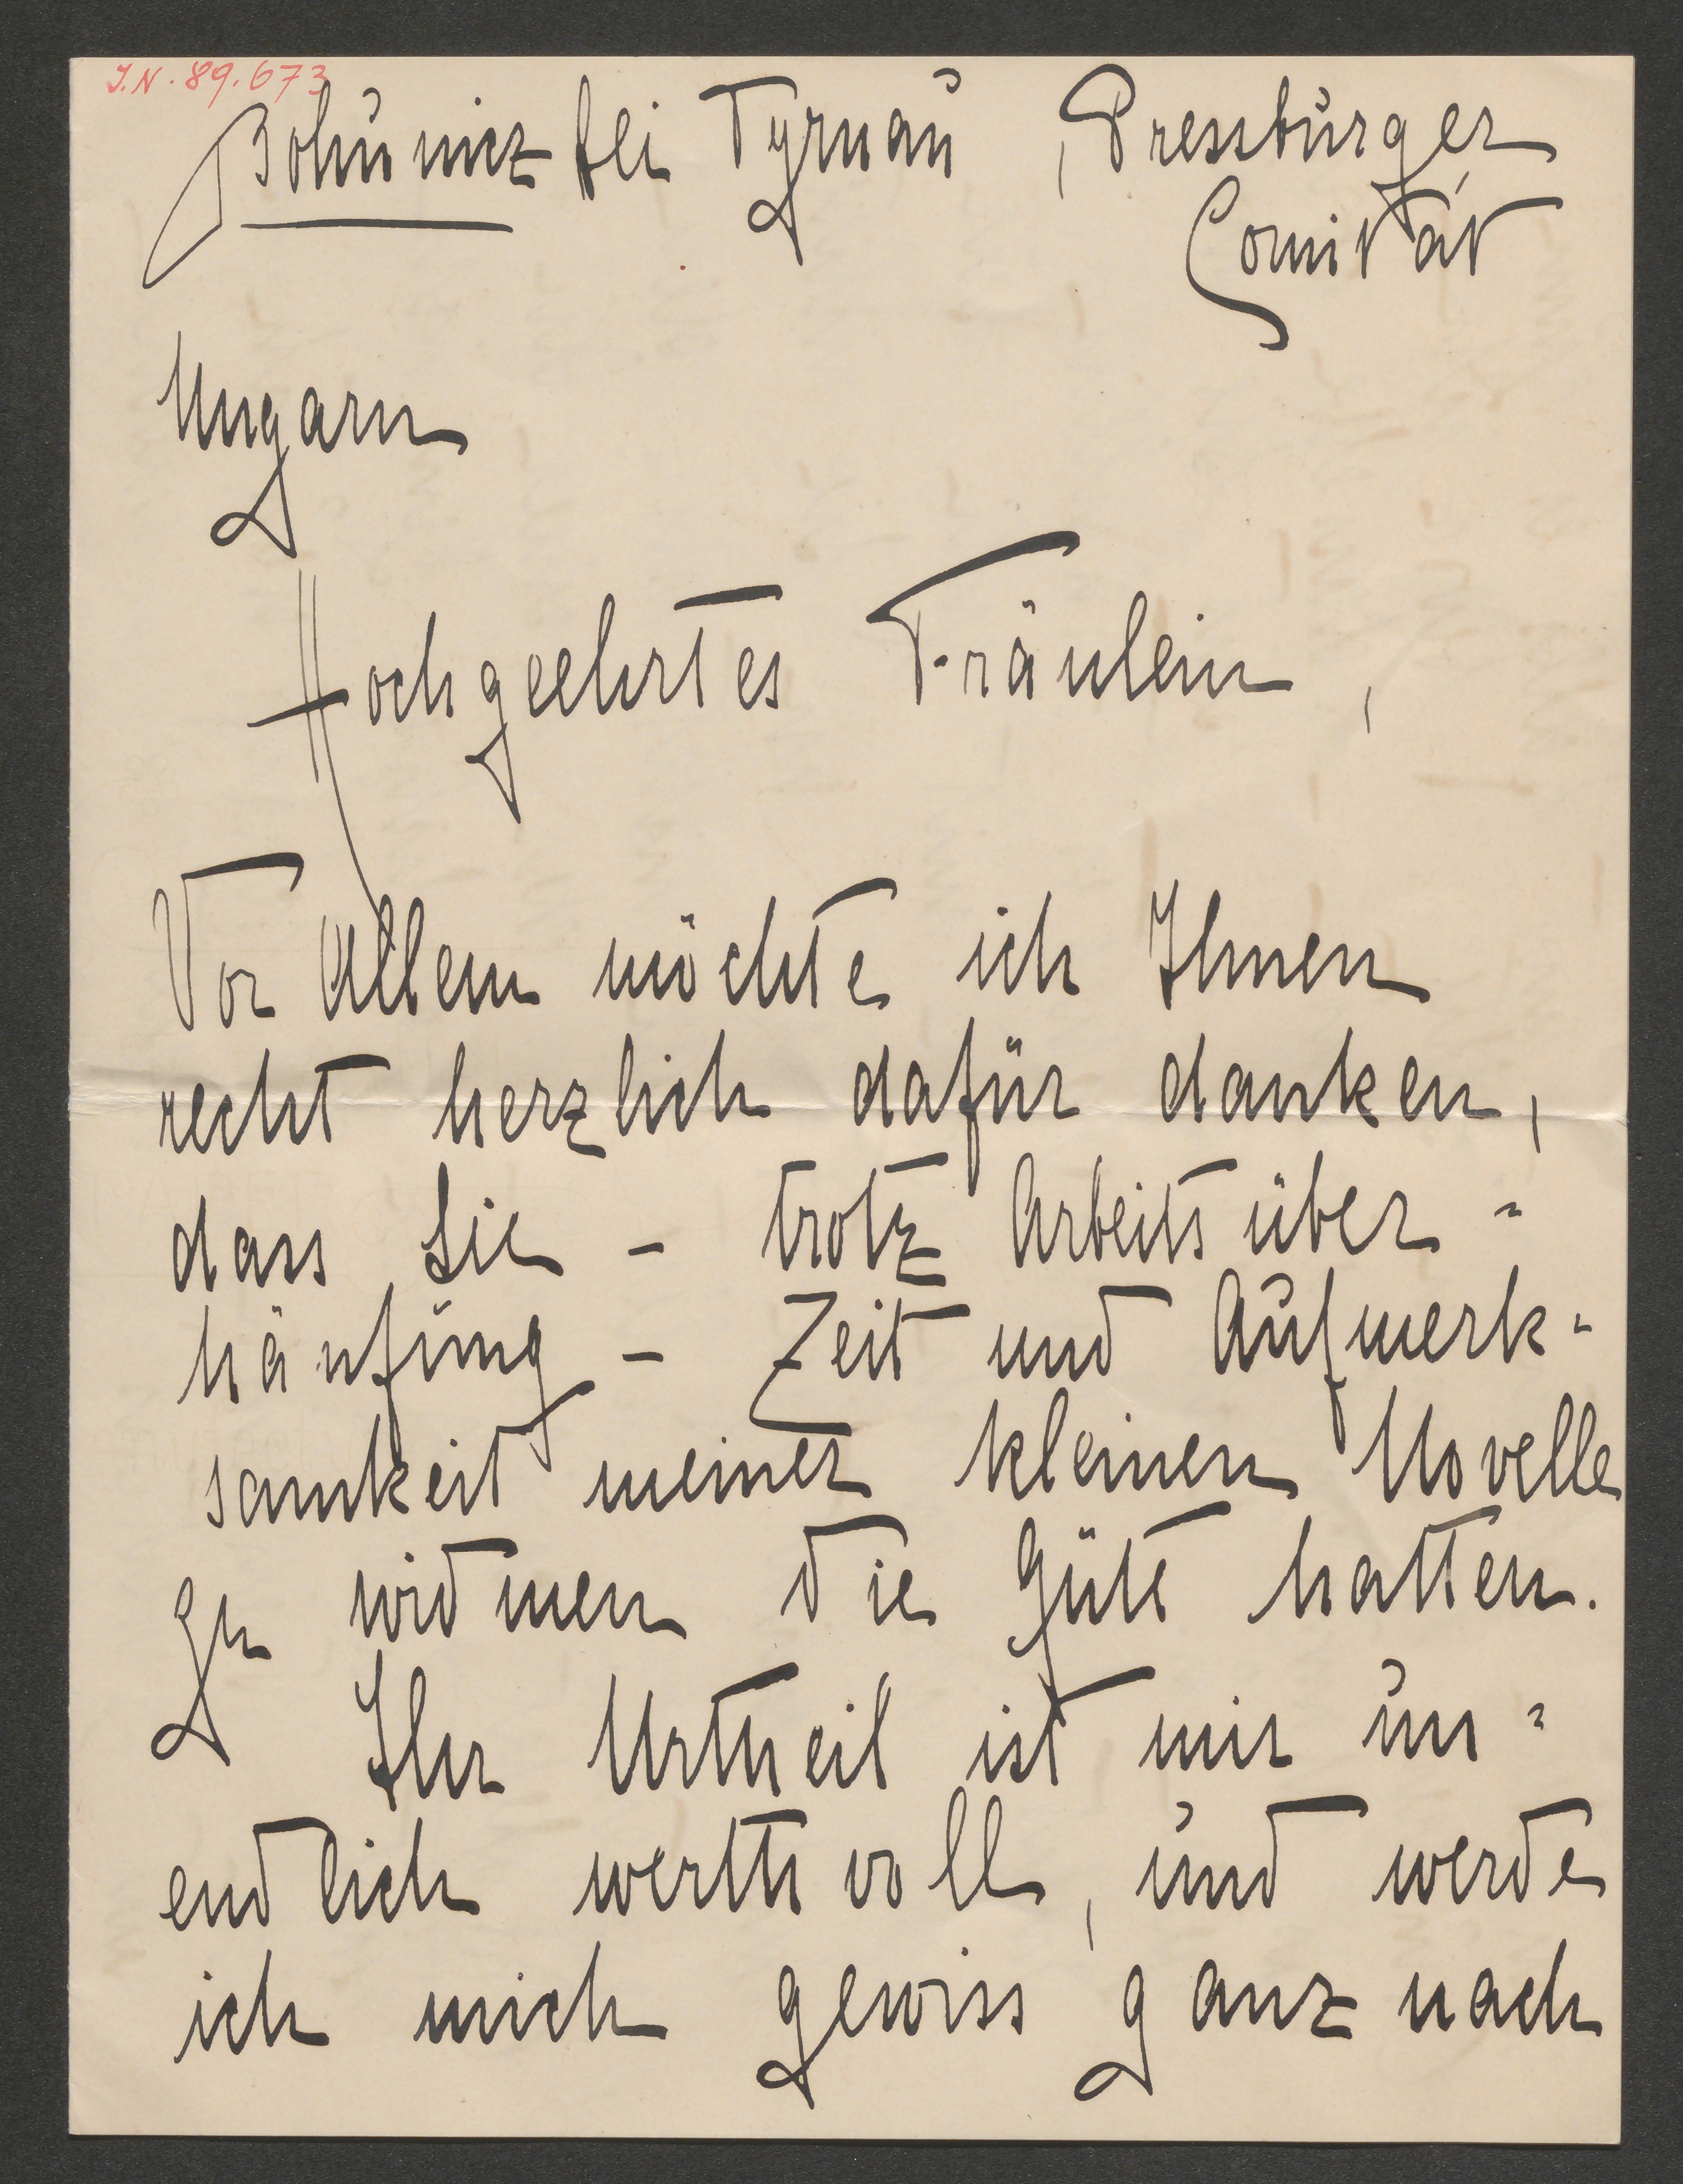 J.N. 89.673
Bohunicz bei Tyrnau, Pressburger
Comitat
Ungarn
Hochgeehrtes Fräulein,
Vor Allem möchte ich Ihnen
recht herzlich dafür danken,
dass Sie - trotz Arbeitsüber=
häufung - Zeit und Aufmerk=
samkeit meiner kleinen Novelle
zu widmen die Güte hatten.
Ihr Urtheil ist mir un=
endlich werthvoll, und werde
ich mich gewiss ganz nach